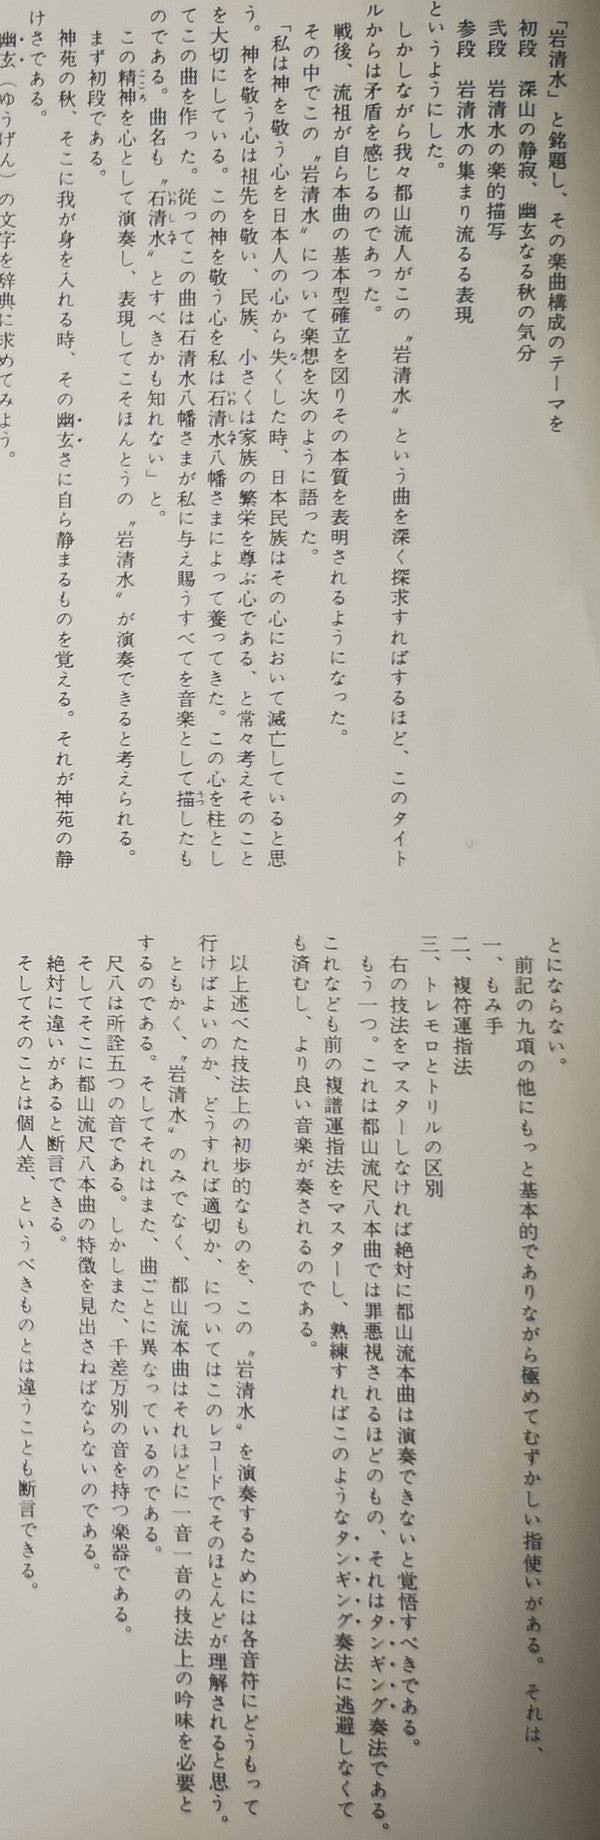 「岩清水」と銘題し、その楽曲構成のテーマを
初段　深山の静寂、幽玄なる秋の気分
弐段　岩清水の楽的描写
参段　岩清水の集まり流るる表現
というようにした。
しかしながら我々都山流人がこの〝岩清水〟という曲を深く探求すればするほど、このタイト
ルからは矛盾を感じるのであった。
戦後、流祖が自ら本曲の基本型確立を図りその本質を表明されるようになった。
その中でこの〝岩清水〟について楽想を次のように語った。
「私は神を敬う心を日本人の心から失くした時、日本民族はその心において滅亡していると思
う。神を敬う心は祖先を敬い、民族、小さくは家族の繁栄を尊ぶ心である、と常々考えそのこと
を大切にしている。この神を敬う心を私は石清水八幡さまによって養ってきた。この心を柱とし
てこの曲を作った。従ってこの曲は石清水八幡さまが私に与え賜うすべてを音楽として描したも
のである。曲名も〝石清水〟とすべきかも知れない」と。
この精神を心として演奏し、表現してこそほんとうの〝岩清水〟が演奏できると考えられる。
まず初段である。
神苑の秋、そこに我が身を入れる時、その幽玄さに自ら静まるものを覚える。それが神苑の静
けさである。
幽玄（ゆうげん）の文字を辞典に求めてみよう。
とにならない。
前記の九項の他にもっと基本的でありながら極めてむずかしい指使いがある。それは、
一、もみ手
二、複符運指法
三、トレモロとトリルの区別
右の技法をマスターしなければ絶対に都山流本曲は演奏できないと覚悟すべきである。
もう一つ。これは都山流尺八本曲では罪悪視されるほどのもの、それはタンギング奏法である。
これなども前の複譜運指法をマスターし、熟練すればこのようなタンギング奏法に逃避しなくて
も済むし、より良い音楽が奏されるのである。
以上述べた技法上の初歩的なものを、この〝岩清水〟を演奏するためには各音符にどうもって
行けばよいのか、どうすれば適切か、についてはこのレコードでそのほとんどが理解されると思う。
ともかく、〝岩清水〟のみでなく、都山流本曲はそれほどに一音一音の技法上の吟味を必要と
するのである。そしてそれはまた、曲ごとに異なっているのである。
尺八は所詮五つの音である。しかしまた、千差万別の音を持つ楽器である。
そしてそこに都山流尺八本曲の特徴を見出さねばならないのである。
絶対に違いがあると断言できる。
そしてそのことは個人差、というべきものとは違うことも断言できる。